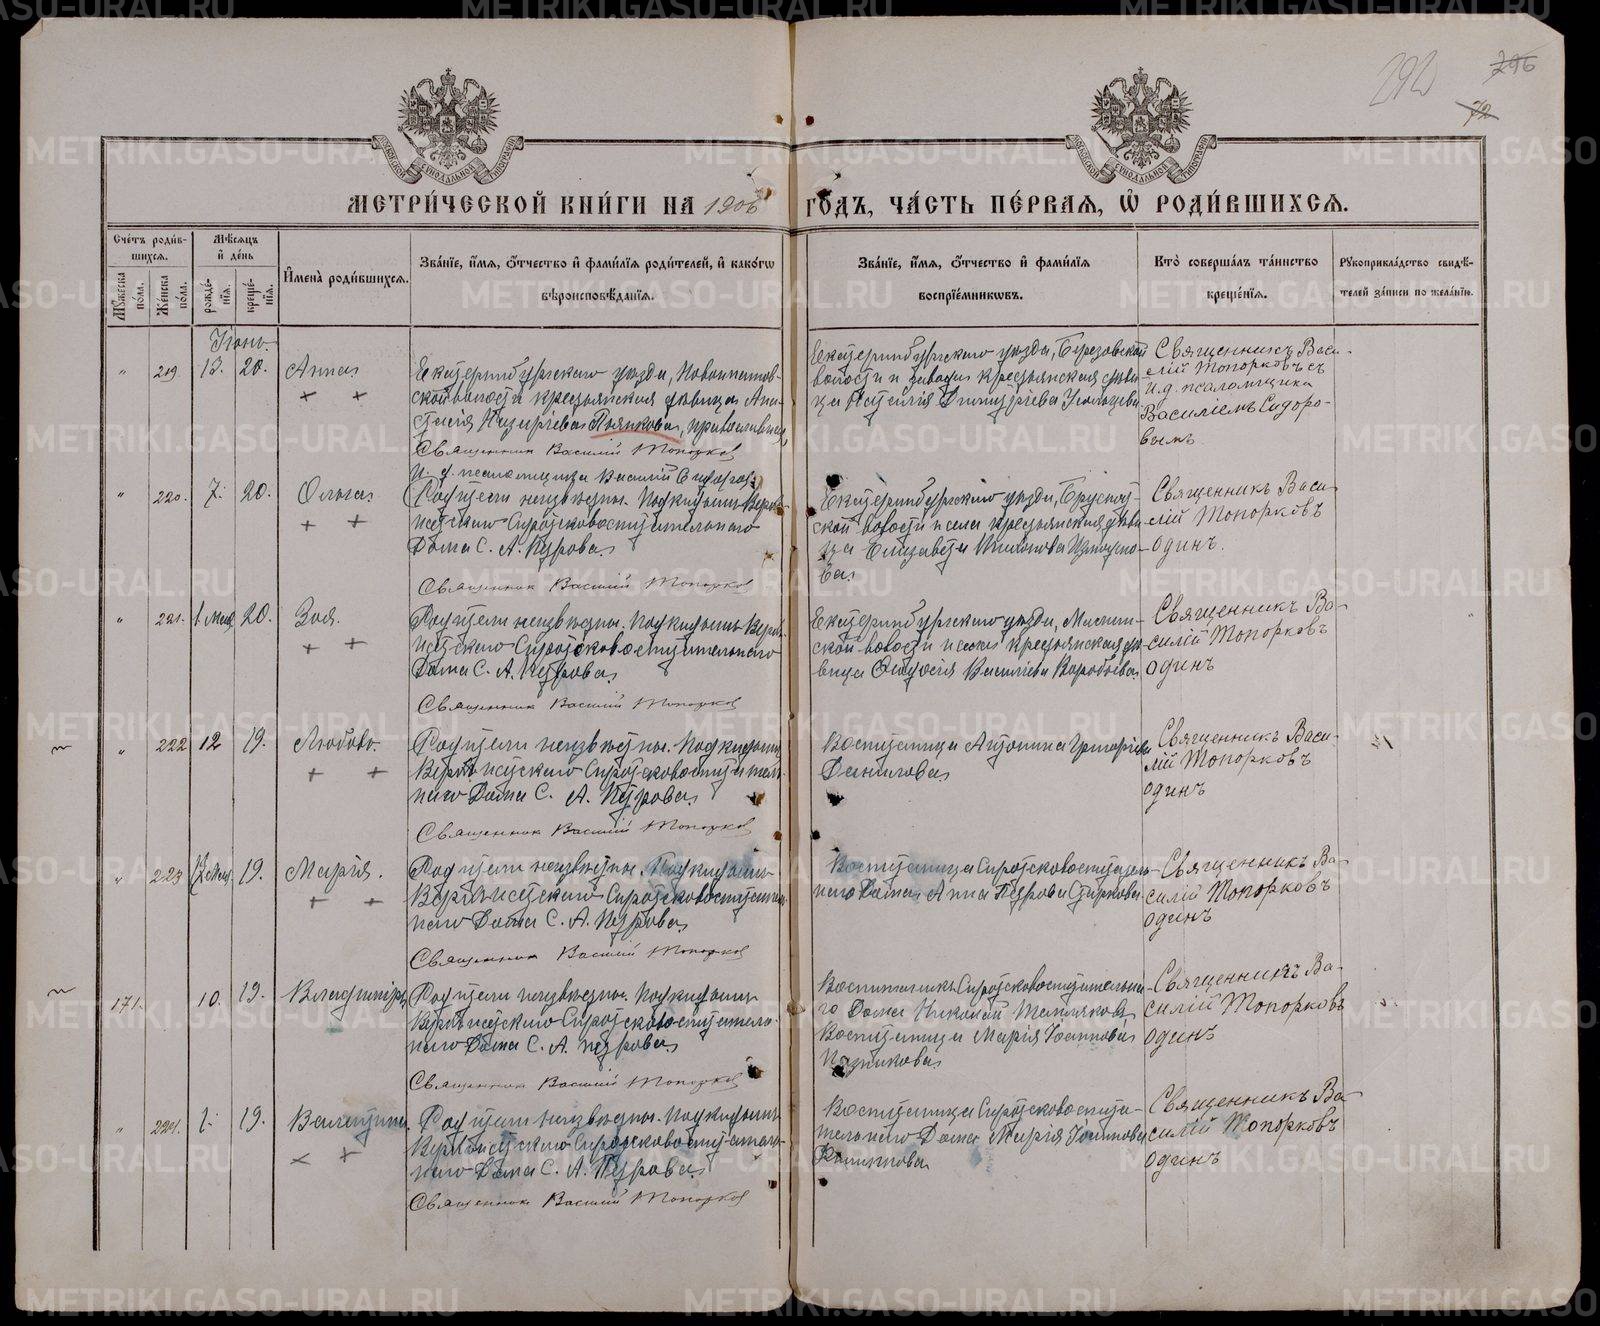 292
296
72
МЕТРИ́ЧЕСКОЙ КНИ́ГИ НА 1906 ГО́ДЪ, ЧА́СТЬ ПЕ́РВАЯ, Ѽ РОДИ́ВШИХСЯ.
Сче́тъ роди́в-
шихся.
Мѣ́сяцъ
и҆ де́нь
Мꙋ́жеска по́ла.
Же́нска по́ла.
рожде́-
нїя.
креще́-
нїя.
И҆мена̀ роди́вшихся.
Зва́нїе, и҆́мя, ѻ҆́тчество и҆ фами́лїя роди́телей, и҆ како́гѡ
вѣроисповѣ́данїя.
Зва́нїе, и҆́мя, ѻ҆́тчество и҆ фами́лїя
воспрїе́мникѡвъ.
Кто̀ соверша́лъ та́инство
креще́нїя.
Рꙋкоприкла́дство свидѣ́-
телей за́писи по жела́нїю.
Іюнь.
" 219 13. 20. Анна
Екатеринбургскаго уѣзда, Новоипатов-
ской волости крестьянская дѣвица Ана-
стасія Назарьева Пьянкова, православная
Священник Василій Топорков
И. д. псаломщика Василій Сидоров
Екатеринбургскаго уѣзда, Березовской
волости и завода крестьянская дѣви-
ца Наталія Димитріева
Священникъ Васи-
лій Топорковъ съ
и.д. псаломщика
Василіемъ Сидоро-
вымъ
" 220. 7. 20. Ольга
Родители неизвѣстны. Подкидышъ Верхъ-
исетскаго Сиротсковоспитательнаго
Дома С. А. Петрова
Священник Василій Топорков
Екатеринбургскаго уѣзда, Бруснят-
ской волости и села крестьянская дѣви-
ца Елизавета
Священникъ Васи-
лій Топорковъ
одинъ.
" 221. 1 мая 20. Зоя.
Родители неизвѣстны. Подкидышъ Верхъ-
исетскаго Сиротсковоспитательнаго
Дома С. А. Петрова
Священник Василій Топорков
Екатеринбургскаго уѣзда,
ской волости и села крестьянская дѣ-
вица Васильева Воробьева
Священникъ Ва-
силій Топорковъ
одинъ
" 222 12 19. Любовь.
Родители неизвѣстны. Подкидышъ
Верхъисетскаго Сиротсковоспитатель-
наго Дома С. А. Петрова
Священник Василій Топорков
Воспитаница Антонина Григорьева
Данилова
Священникъ Васи-
лій Топорковъ
одинъ
" 223 19. Марія.
Родители неизвѣстны. Подкидышъ
Верхъисетскаго Сиротсковоспитатель-
наго Дома С. А. Петрова
Священник Василій Топорков
Воспитаница Сиротсковоспитатель-
наго Дома Анна Петрова Старкова
Священникъ Ва-
силій Топорковъ
одинъ
171. 10. 19. Владиміръ
Родители неизвѣстны. Подкидышъ
Верхъисетскаго Сиротсковоспитатель-
наго Дома С. А. Петрова
Священник Василій Топорков
Воспитаникъ Сиротсковоспитательна-
го Дома Николай Тепляковъ,
Воспитаница Марія Іоаннова
Священникъ Ва-
силій Топорковъ
одинъ
" 224. 1. 19. Валентина.
Родители неизвѣстны. Подкидышъ
Верхъисетскаго Сиротсковоспитатель-
наго Дома С. А. Петрова
Священник Василій Топорков
Воспитаница Сиротсковоспита-
тельнаго Дома Марія Іоаннова
Священникъ Ва-
силій Топорковъ
одинъ
METRIKI.GASO-URAL.RU